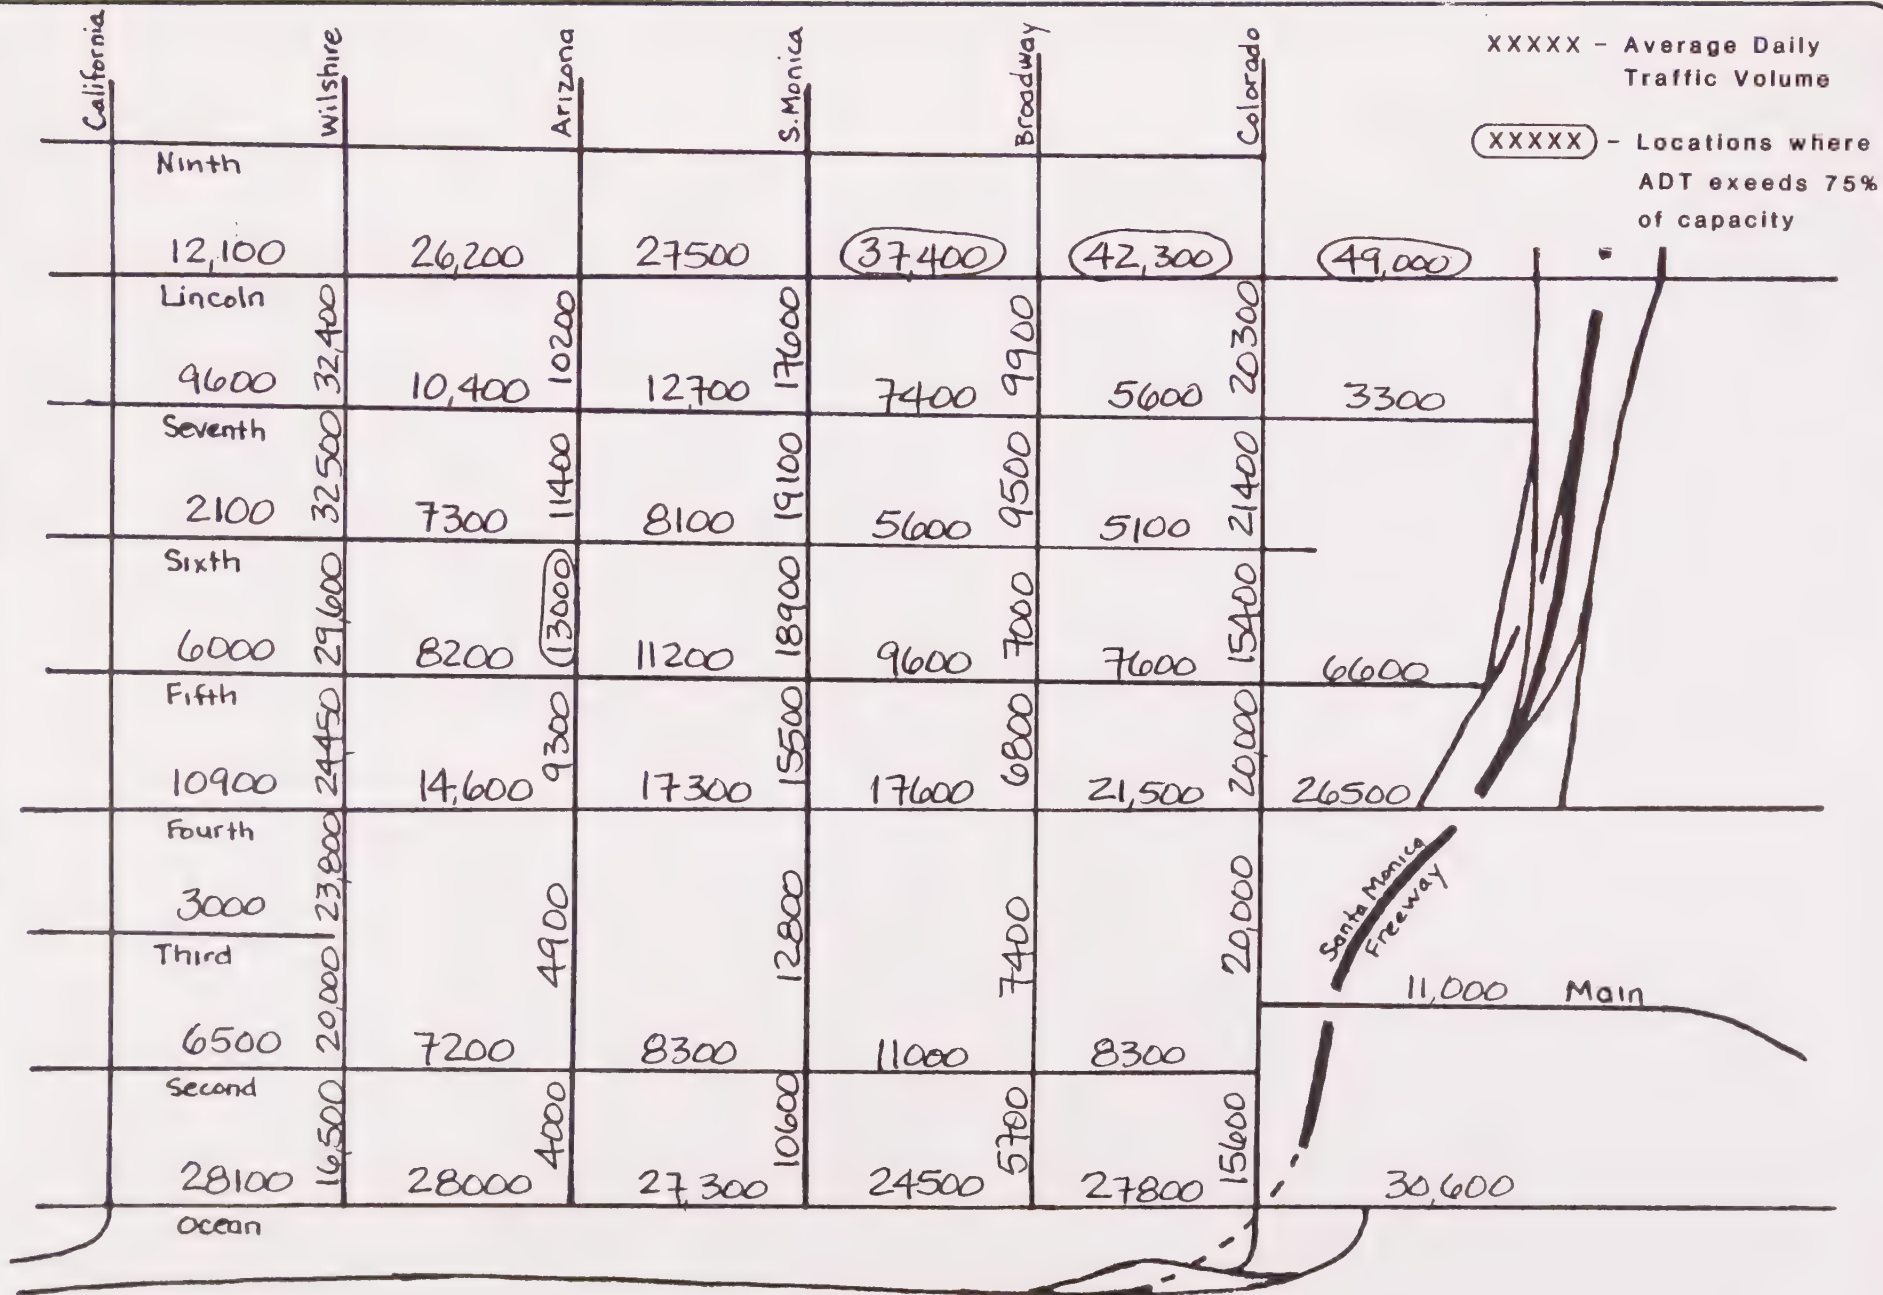 California
Wilshire
Arizona
S. Monica
Broadway
Colorado
XXXXX - Average Daily
Traffic Volume
XXXXX - Locations where
ADT exeeds 75%
of capacity
Ninth
12,100 26,200 27500 37,400 42,300 49,000
Lincoln
32,400 10200 17600 9900 20300
9600 10,400 12,700 7400 5600 3300
Seventh
32500 11400 19100 9500 21400
2100 7300 8100 5600 5100
Sixth
29,600 13000 18900 7000 15400
6000 8200 11200 9600 7600 6600
Fifth
24450 9300 15500 6800 20,000
10900 14,600 17300 17600 21,500 26500
Fourth
23,800 4900 12800 7400 20,000
3000
Santa Monica
Freeway
Third
20,000
11,000 Main
6500 7200 8300 11000 8300
Second
16,500 4000 10600 5700 15600
28100 28000 27,300 24500 27800 30,600
Ocean